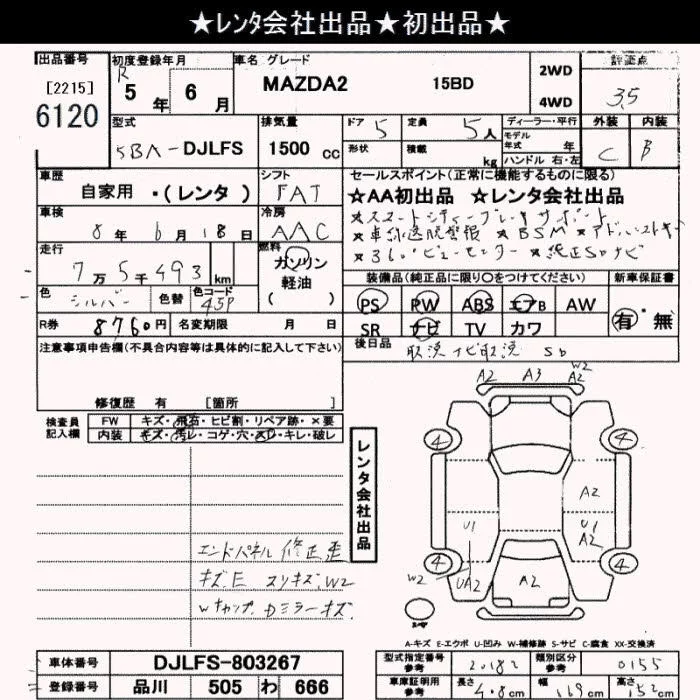 ★レンタ会社出品★初出品★
出品番号 初度登録年月 車名 グレード 評価点
[2215] 6120 R 5年 6月 MAZDA2 15BD 2WD 4WD 3.5
型式 排気量 ドア 5 定員 5人 ディーラー・平行 外装 内装
5BA-DJLFS 1500cc 形状 積載 kg モデル年式 年 ハンドル 右・左 C B
車歴 シフト セールスポイント(正常に機能するものに限る)
自家用 ・(レンタ) FAT ☆AA初出品 ☆レンタ会社出品
車検 冷房 ★スマートシティーブレーキサポート
8年 6月 18日 AAC ★車線逸脱警報 ★BSM
走行 燃料 ★360°ビューモニター ★純正SDナビ
7万5千493km ガソリン 軽油 ( ) 装備品(純正品に限り○をつけてください) 新車保証書
色 シルバー 色替 色コード 45P PS PW ABS エアB AW 有・無
R券 8760円 名変期限 月 日 SR ナビ TV カワ
後日品 取説 ナビ取説 SD
注意事項申告欄(不具合内容等は具体的に記入して下さい)
修復歴 有 [箇所 ]
検査員記入欄 FW キズ・飛石・ヒビ割・リペア跡・×要
内装 キズ・汚レ・コゲ・穴・スレ・キレ・破レ
レンタ会社出品
A2 A3 W2 A2
4 4
A2
U1 U1 A2
4 4
W2 UA2 A2
エンドパネル 修正歪
キズ、E スリキズ、W2
Wキャップ、Dミラーキズ
A-キズ E-エクボ U-凹み W-補修跡 S-サビ C-腐食 XX-交換済
車体番号 DJLFS-803267 型式指定番号 参考 20182 類別区分 参考 0155
登録番号 品川 505 わ 666 車庫証明用 参考 長さ 408cm 幅 169cm 高さ 152cm